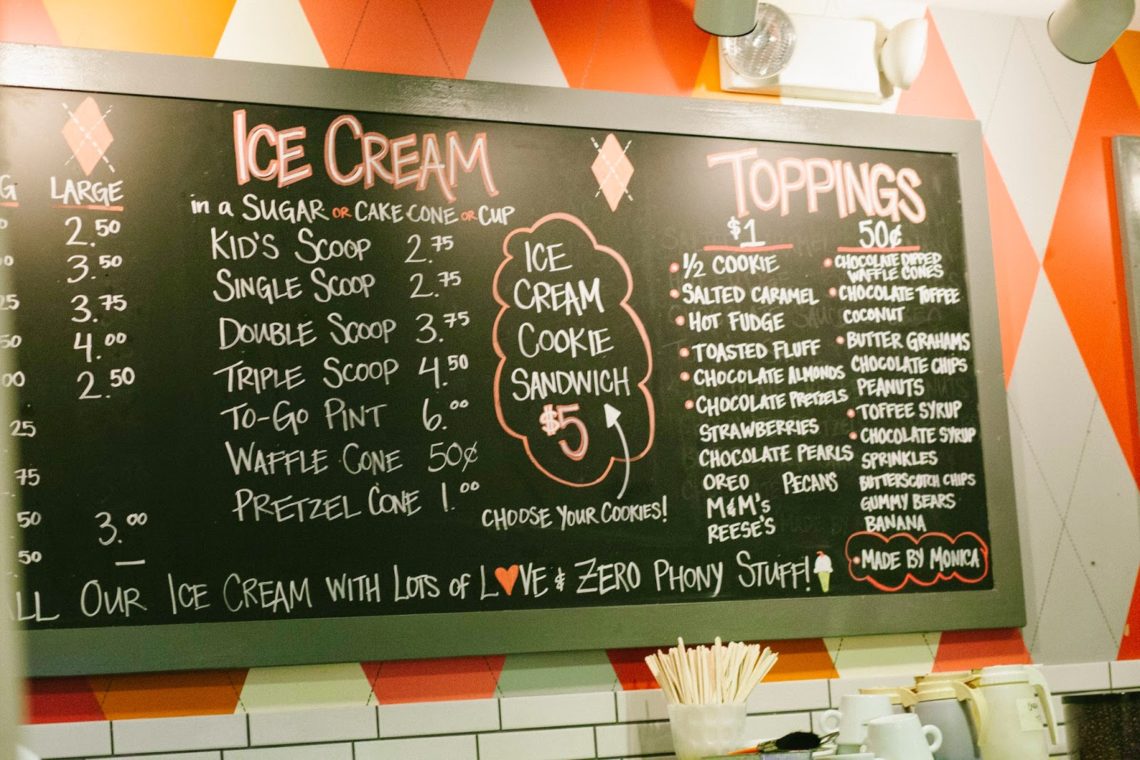 G
LARGE
2.50
3.50
25 3.75
50 4.00
00 2.50
25
75
50 3.00
50 —
ICE CREAM
in a SUGAR OR CAKE CONE OR CUP
KID'S SCOOP 2.75
SINGLE SCOOP 2.75
DOUBLE SCOOP 3.75
TRIPLE SCOOP 4.50
TO-GO PINT 6.00
WAFFLE CONE 50¢
PRETZEL CONE 1.00
ICE
CREAM
COOKIE
SANDWICH
$5
CHOOSE YOUR COOKIES!
TOPPINGS
$1
• 1/2 COOKIE
• SALTED CARAMEL
• HOT FUDGE
• TOASTED FLUFF
• CHOCOLATE ALMONDS
• CHOCOLATE PRETZELS
STRAWBERRIES
CHOCOLATE PEARLS
OREO PECANS
M&M'S
REESE'S
50¢
• CHOCOLATE DIPPED
WAFFLE CONES
• CHOCOLATE TOFFEE
COCONUT
• BUTTER GRAHAMS
CHOCOLATE CHIPS
PEANUTS
• TOFFEE SYRUP
• CHOCOLATE SYRUP
SPRINKLES
BUTTERSCOTCH CHIPS
GUMMY BEARS
BANANA
• MADE BY MONICA
ALL OUR ICE CREAM WITH LOTS OF LOVE & ZERO PHONY STUFF!